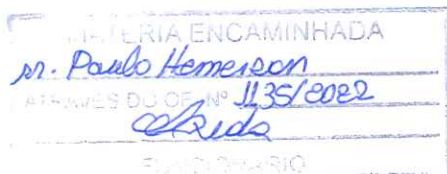 MATÉRIA ENCAMINHADA
sr. Paulo Hemerson
ATRAVÉS DO OF. Nº 1135/2022
FUNCIONÁRIO